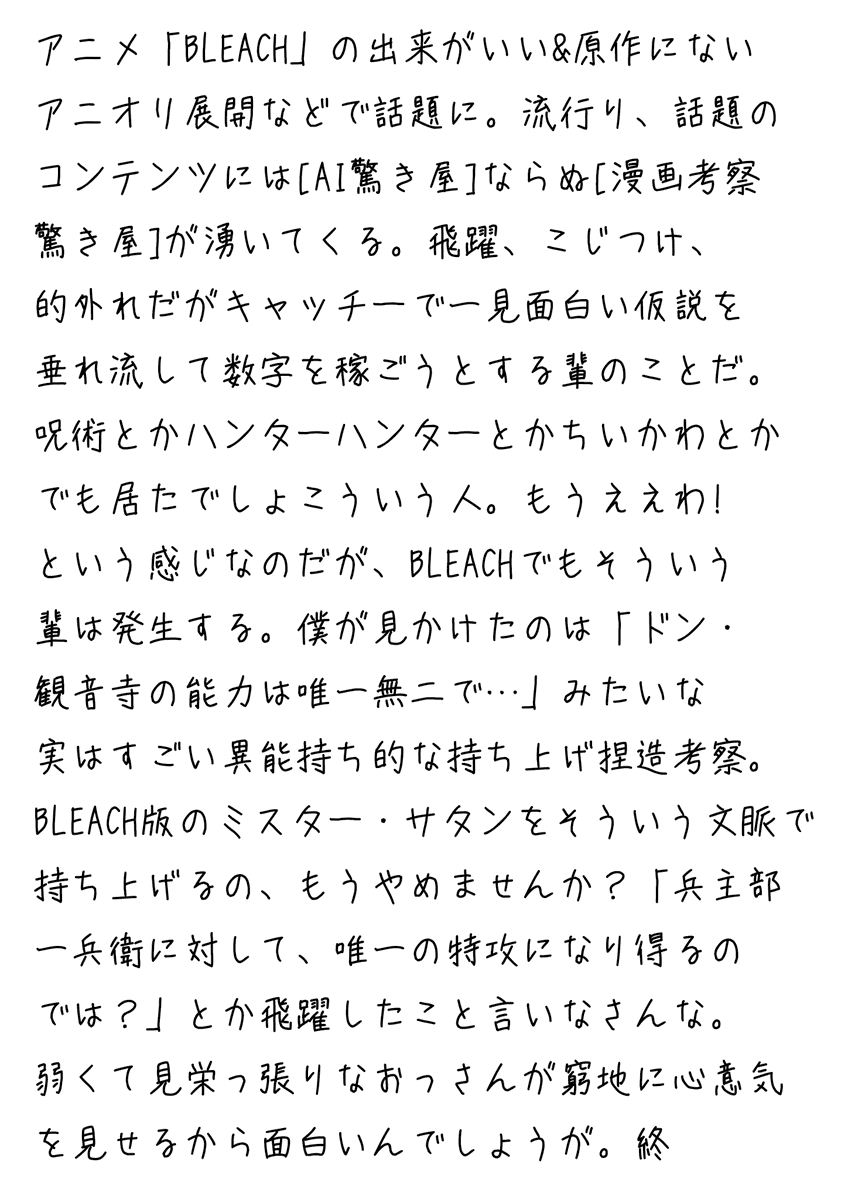 アニメ「BLEACH」の出来がいい&原作にない
アニオリ展開などで話題に。流行り、話題の
コンテンツには[AI驚き屋]ならぬ[漫画考察
驚き屋]が湧いてくる。飛躍、こじつけ、
的外れだがキャッチーで一見面白い仮説を
垂れ流して数字を稼ごうとする輩のことだ。
呪術とかハンターハンターとかちいかわとか
でも居たでしょこういう人。もうええわ!
という感じなのだが、BLEACHでもそういう
輩は発生する。僕が見かけたのは「ドン・
観音寺の能力は唯一無二で…」みたいな
実はすごい異能持ち的な持ち上げ捏造考察。
BLEACH版のミスター・サタンをそういう文脈で
持ち上げるの、もうやめませんか？「兵主部
一兵衛に対して、唯一の特攻になり得るの
では？」とか飛躍したこと言いなさんな。
弱くて見栄っ張りなおっさんが窮地に心意気
を見せるから面白いんでしょうが。終